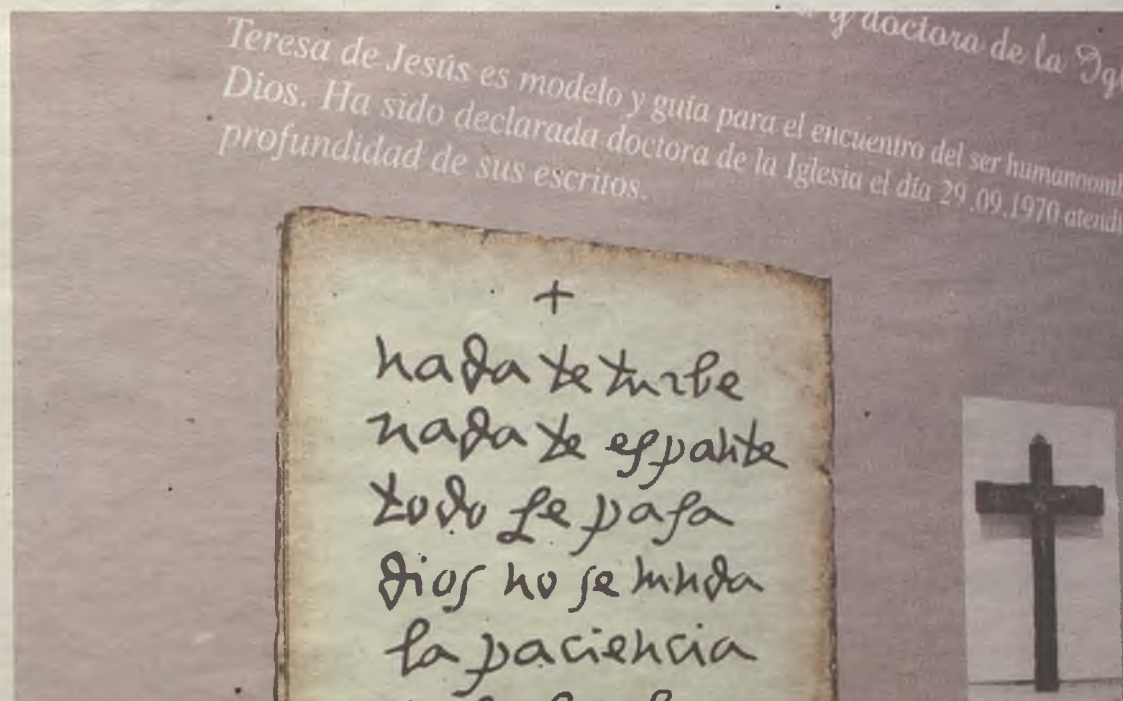 y doctora de la
Teresa de Jesús es modelo y guía para el encuentro del ser
Dios. Ha sido declarada doctora de la Iglesia el día 29.09.1970
profundidad de sus escritos.
+
nada te turbe
nada te espante
todo se pasa
dios no se muda
la paciencia